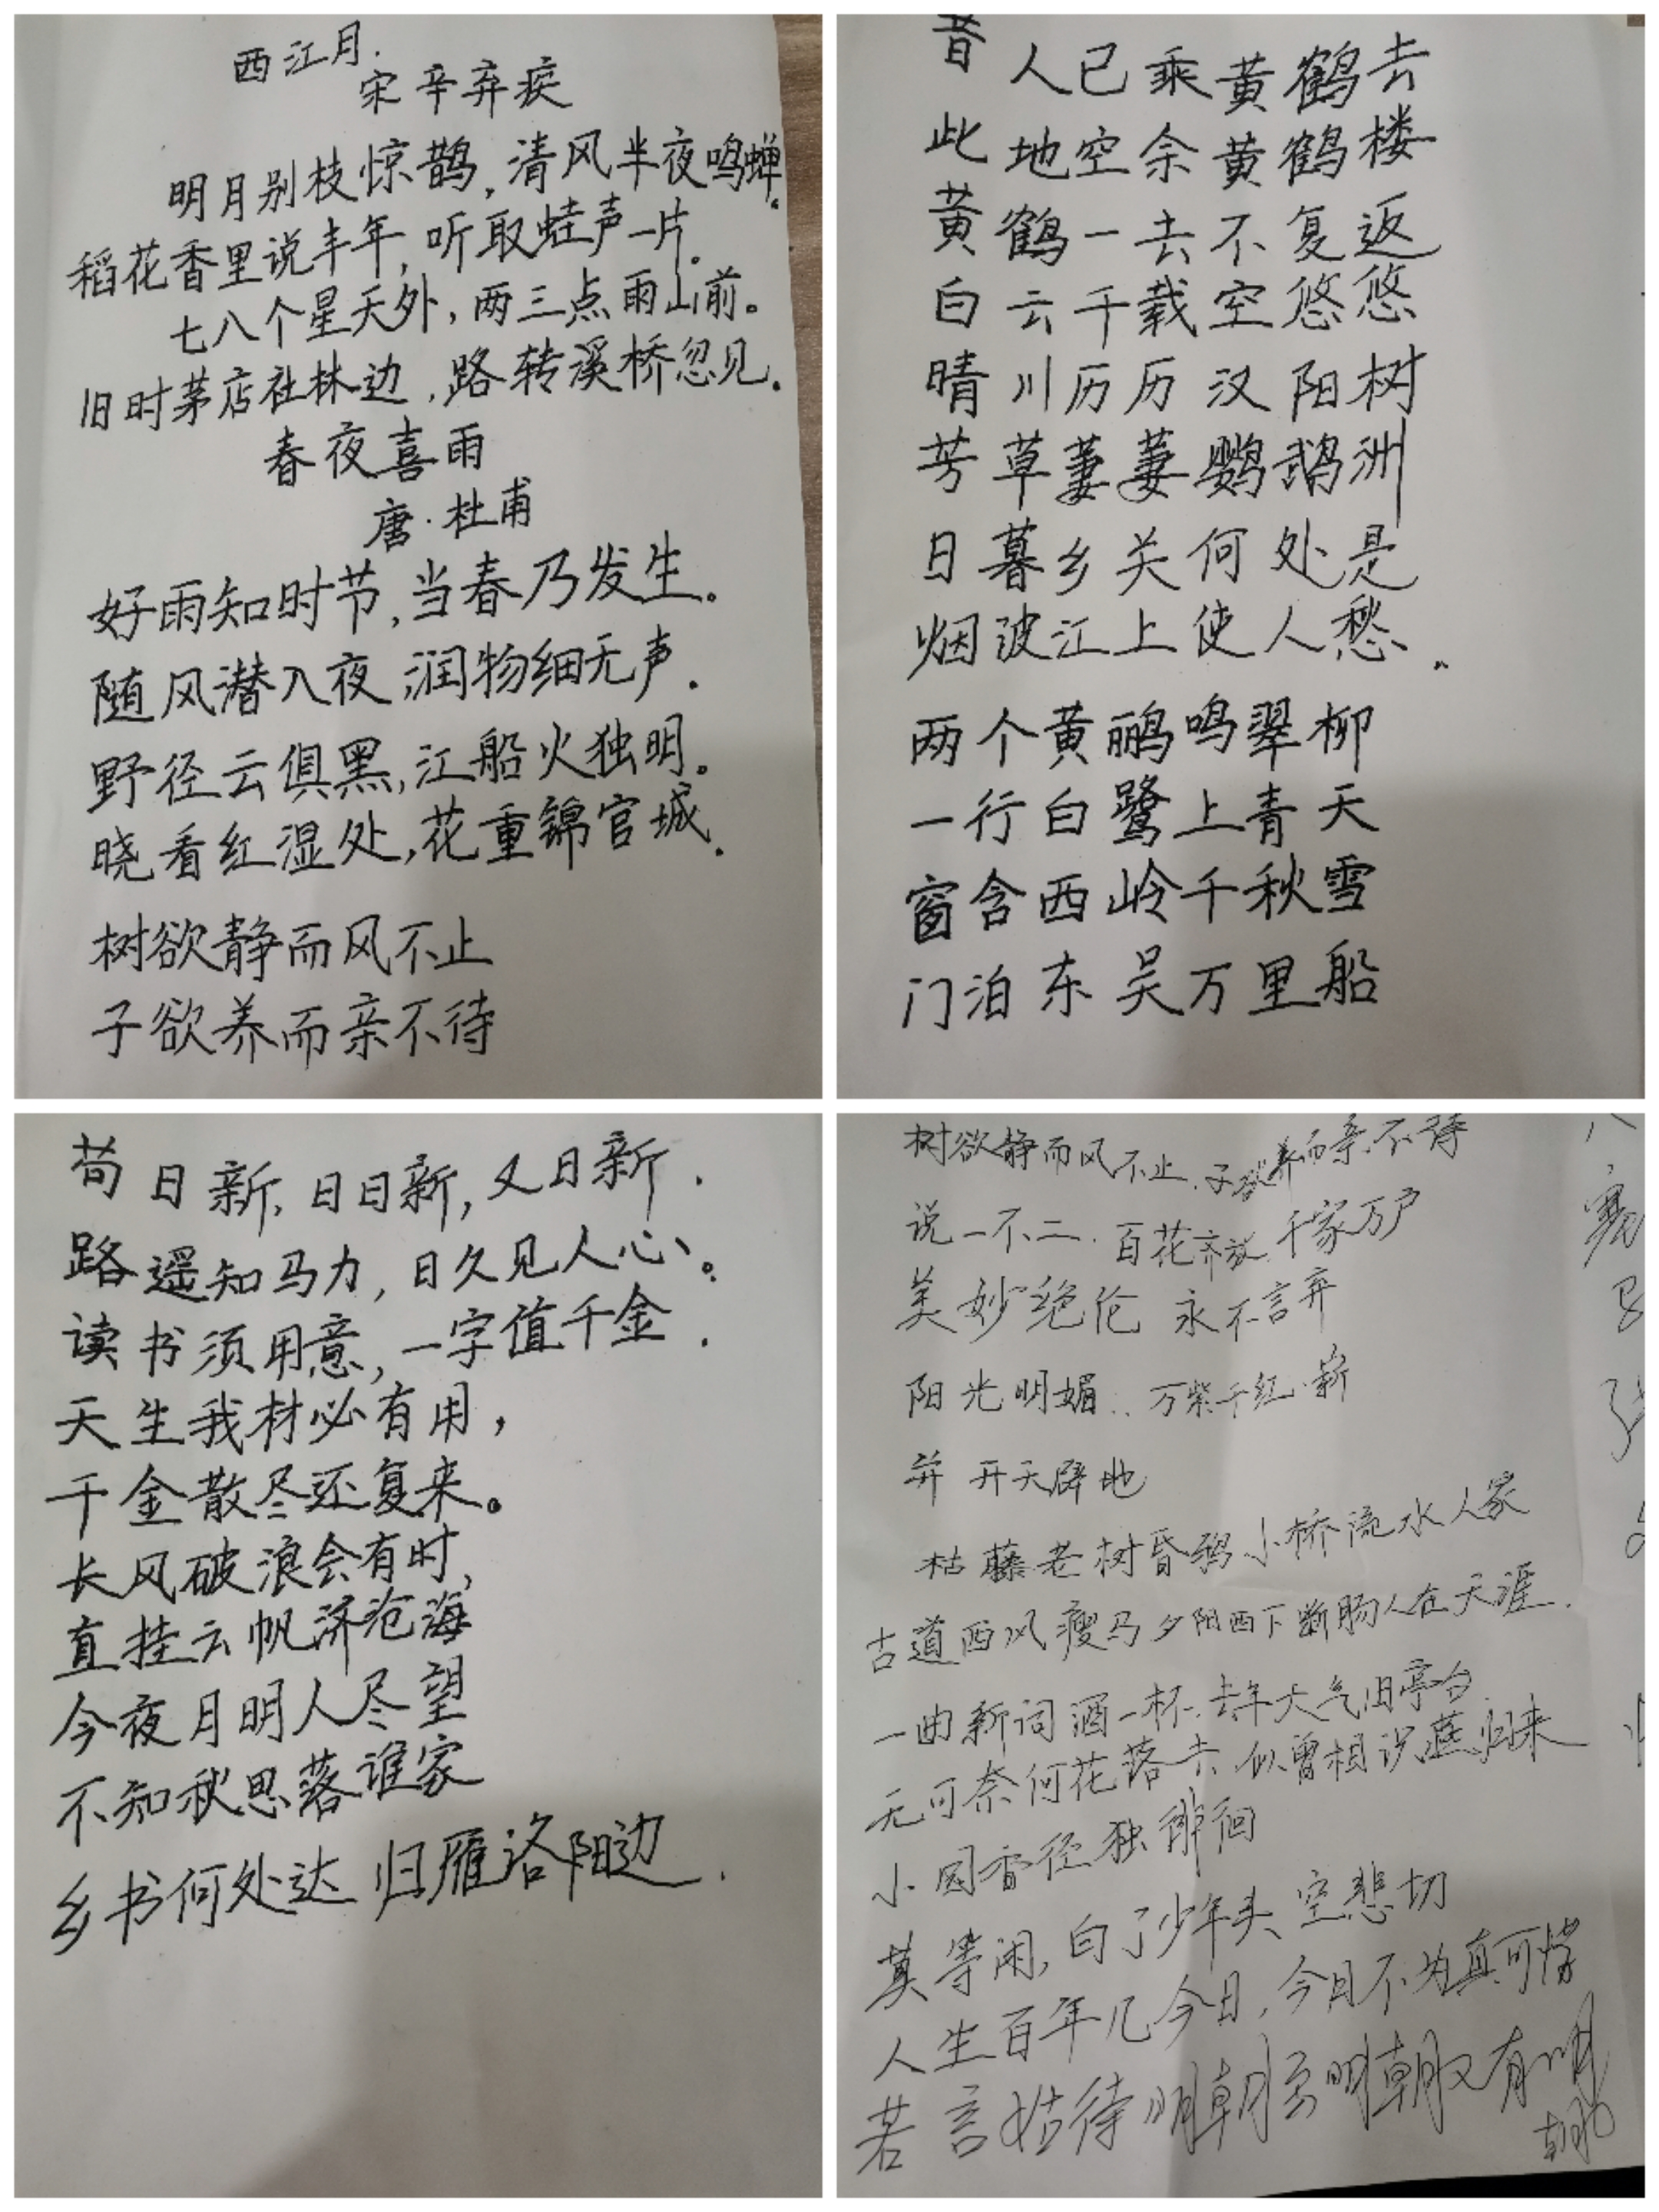 西江月.
宋辛弃疾
明月别枝惊鹊,清风半夜鸣蝉。
稻花香里说丰年,听取蛙声一片.
七八个星天外,两三点雨山前。
旧时茅店社林边,路转溪桥忽见.
春夜喜雨
唐·杜甫
好雨知时节,当春乃发生。
随风潜入夜,润物细无声.
野径云俱黑,江船火独明。
晓看红湿处,花重锦官城.
树欲静而风不止
子欲养而亲不待
昔人已乘黄鹤去
此地空余黄鹤楼
黄鹤一去不复返
白云千载空悠悠
晴川历历汉阳树
芳草萋萋鹦鹉洲
日暮乡关何处是
烟波江上使人愁.
两个黄鹂鸣翠柳
一行白鹭上青天
窗含西岭千秋雪
门泊东吴万里船
苟日新,日日新,又日新.
路遥知马力,日久见人心。
读书须用意,一字值千金.
天生我材必有用,
千金散尽还复来。
长风破浪会有时,
直挂云帆济沧海
今夜月明人尽望
不知秋思落谁家
乡书何处达 归雁洛阳边.
树欲静而风不止.子欲养而亲不待
说一不二.百花齐放.千家万户
美妙绝伦 永不言弃
阳光明媚..万紫千红.新
并 开天辟地
枯藤老树昏鸦小桥流水人家
古道西风瘦马夕阳西下断肠人在天涯.
一曲新词酒一杯.去年天气旧亭台
无可奈何花落去.似曾相识燕归来
小园香径独徘徊
莫等闲,白了少年头 空悲切
人生百年几今日,今日不为真可惜
若言姑待明朝至明朝又有明
朝